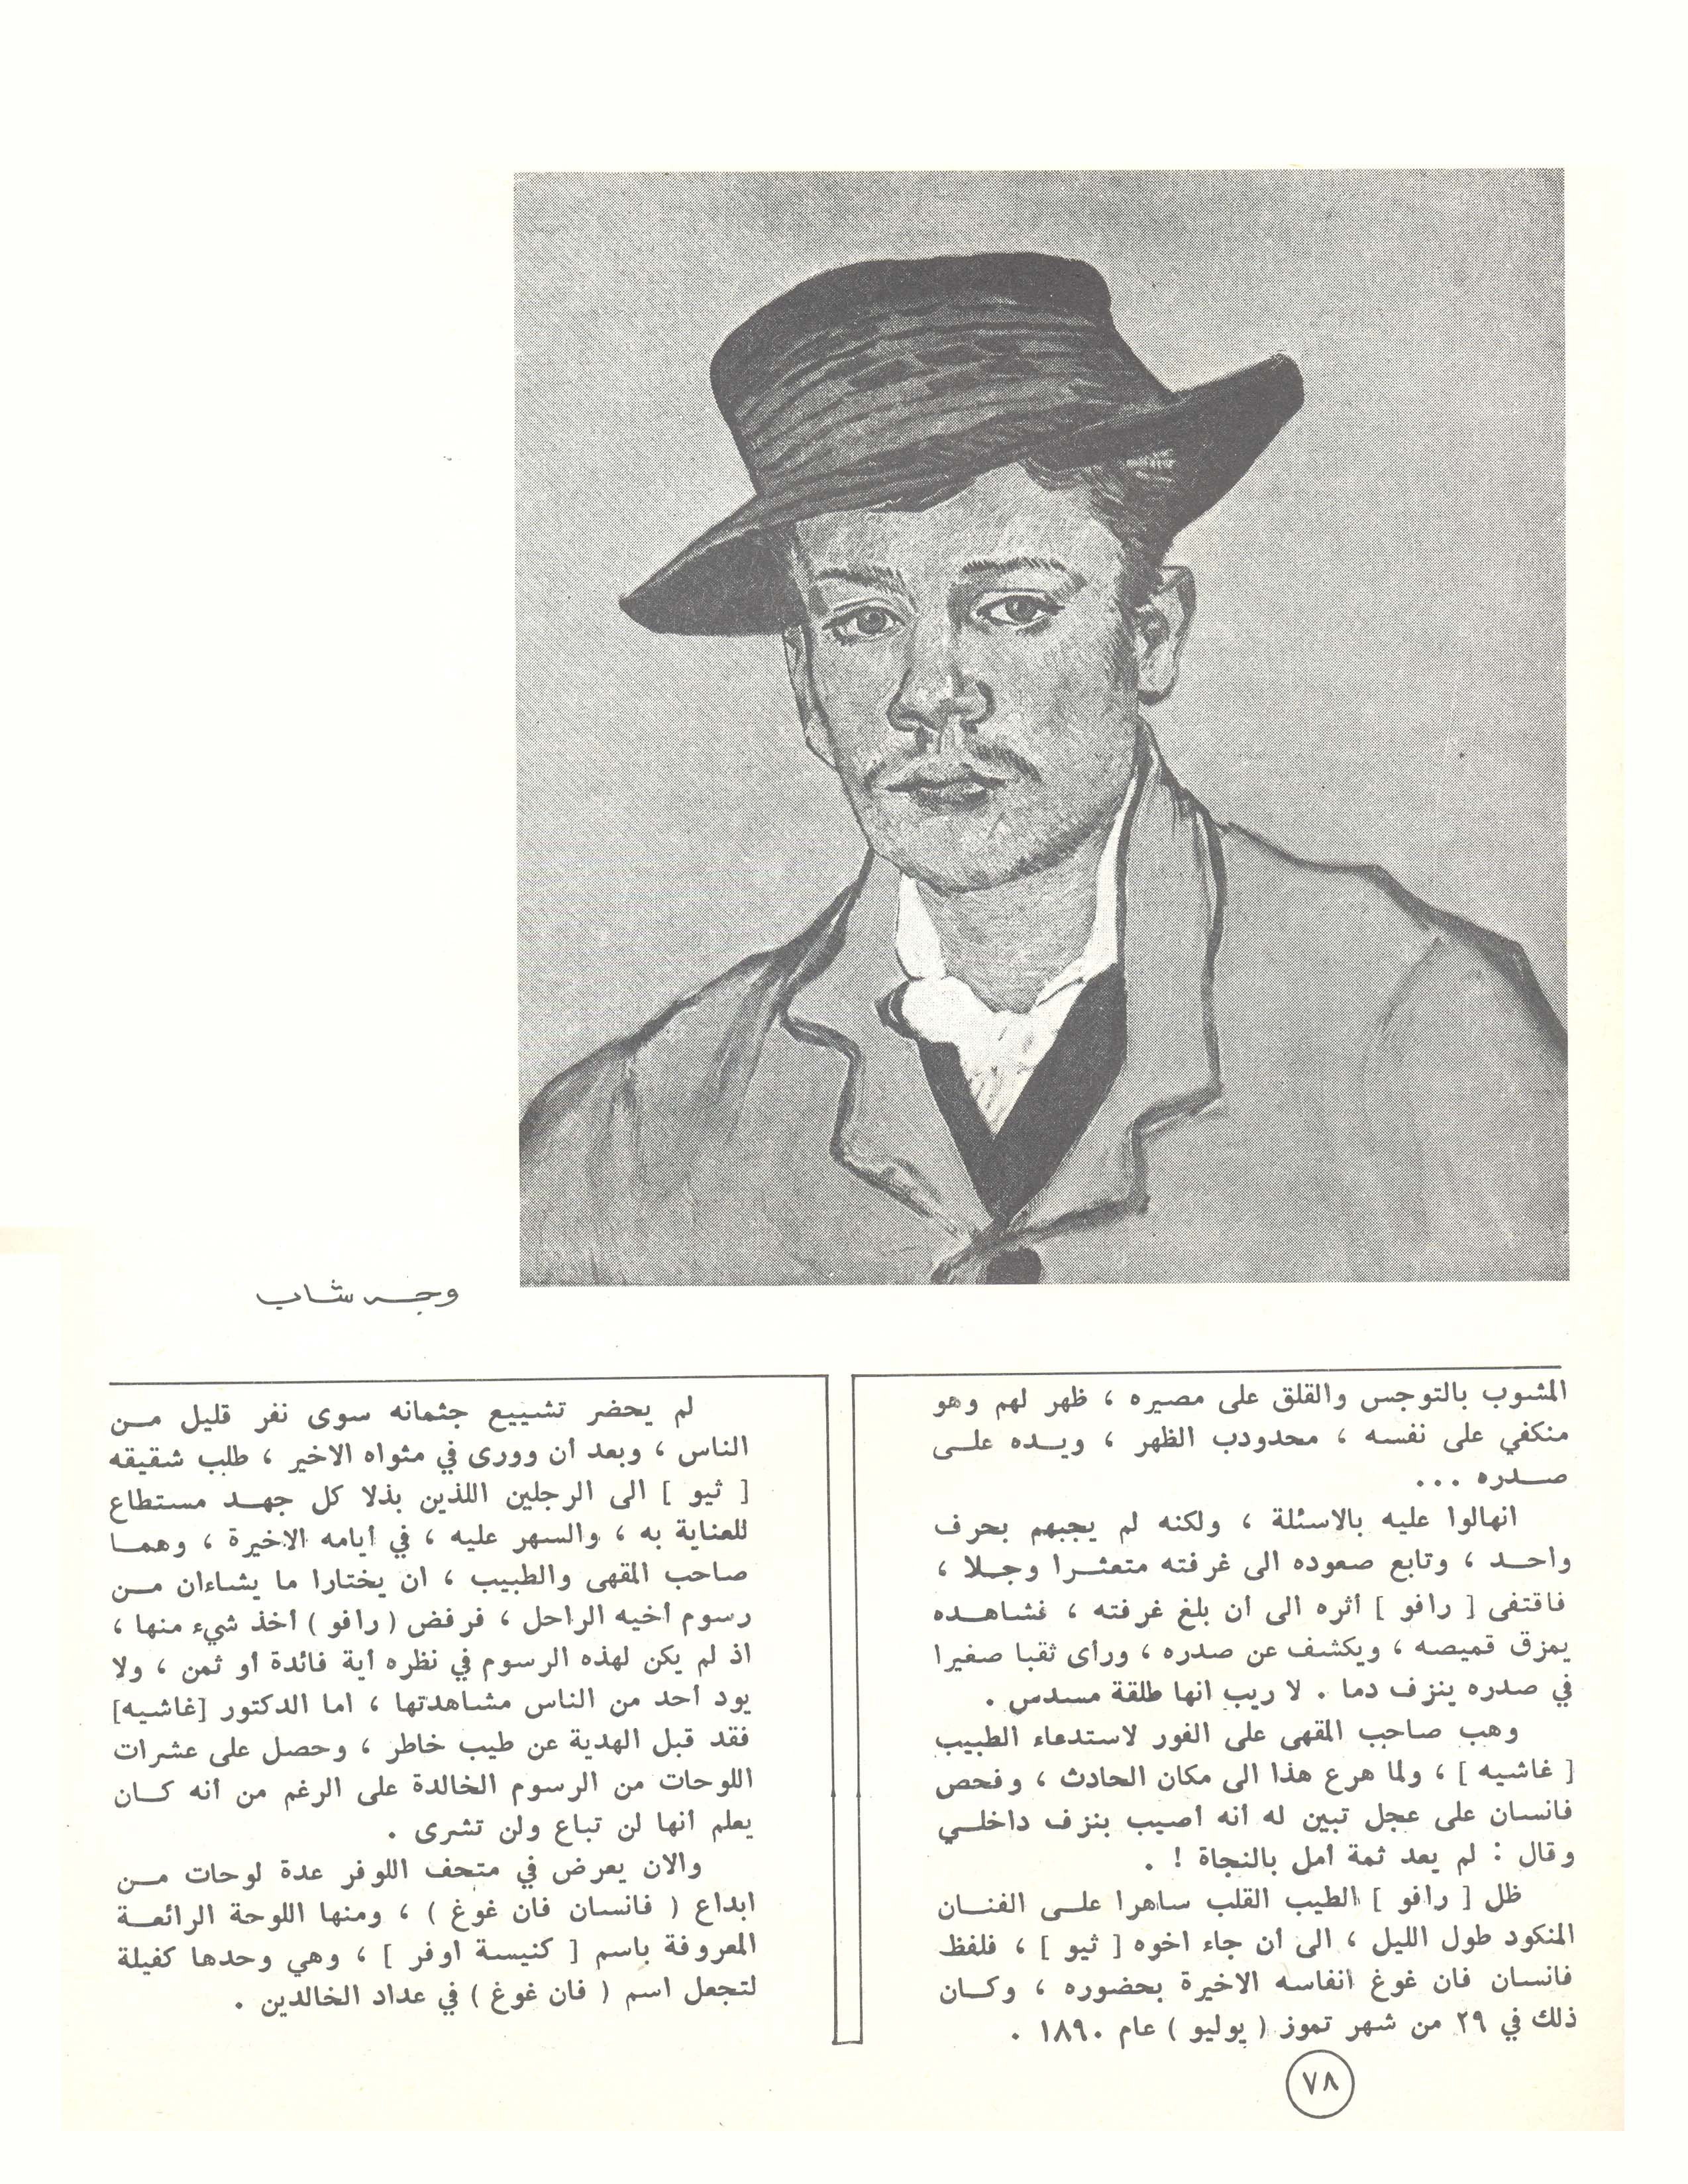 وجه شاب
المشوب بالتوجس والقلق على مصيره ، ظهر لهم وهو
منكفي على نفسه ، محدودب الظهر ، ويده على
صدره ...
انهالوا عليه بالاسئلة ، ولكنه لم يجبهم بحرف
واحد ، وتابع صعوده الى غرفته متعثرا وجلا ،
فاقتفى [ رافو ] أثره الى أن بلغ غرفته ، فشاهده
يمزق قميصه ، ويكشف عن صدره ، ورأى ثقبا صغيرا
في صدره ينزف دما . لا ريب انها طلقة مسدس .
وهب صاحب المقهى على الفور لاستدعاء الطبيب
[ غاشيه ] ، ولما هرع هذا الى مكان الحادث ، وفحص
فانسان على عجل تبين له أنه أصيب بنزف داخلي
وقال : لم يعد ثمة أمل بالنجاة ! .
ظل [ رافو ] الطيب القلب ساهرا على الفنان
المنكود طول الليل ، الى أن جاء اخوه [ ثيو ] ، فلفظ
فانسان فان غوغ انفاسه الاخيرة بحضوره ، وكان
ذلك في ٢٩ من شهر تموز ( يوليو ) عام ١٨٩٠ .
لم يحضر تشييع جثمانه سوى نفر قليل من
الناس ، وبعد أن وورى في مثواه الاخير ، طلب شقيقه
[ ثيو ] الى الرجلين اللذين بذلا كل جهد مستطاع
للعناية به ، والسهر عليه ، في أيامه الاخيرة ، وهما
صاحب المقهى والطبيب ، ان يختارا ما يشاءان من
رسوم أخيه الراحل ، فرفض ( رافو ) أخذ شيء منها ،
اذ لم يكن لهذه الرسوم في نظره أية فائدة أو ثمن ، ولا
يود أحد من الناس مشاهدتها ، اما الدكتور [غاشيه]
فقد قبل الهدية عن طيب خاطر ، وحصل على عشرات
اللوحات من الرسوم الخالدة على الرغم من أنه كان
يعلم أنها لن تباع ولن تشرى .
والان يعرض في متحف اللوفر عدة لوحات من
ابداع ( فانسان فان غوغ ) ، ومنها اللوحة الرائعة
المعروفة باسم [ كنيسة أوفر ] ، وهي وحدها كفيلة
لتجعل اسم ( فان غوغ ) في عداد الخالدين .
٧٨